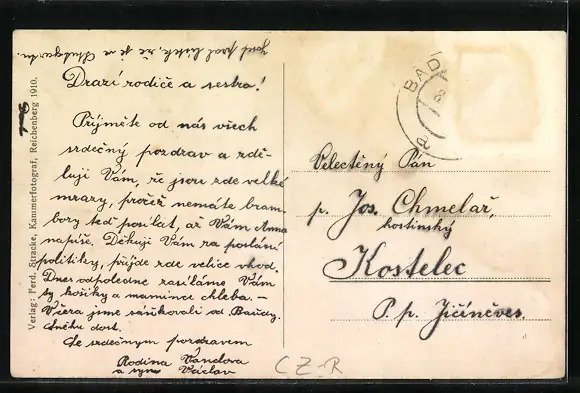 Josef psal lístek, že je v Stuttgartu.
Drazí rodiče a sestra!
Přijměte od nás všech
srdečný pozdrav a sdě-
luji Vám, že jsou zde velké
mrazy, pročež nemáte bram-
bory teď posílat, až Vám Anna
napíše. Děkuji Vám za poslání
politiky, přijde zde velice vhod.
Dnes odpoledne zasíláme Vám
ty košíky a mamince chleba. –
Včera jsme sáňkovali od Baudy.
Sněhu dost.
Se srdečným pozdravem
Rodina Vandova
a syn Václav
Verlag: Ferd. Stracke, Kammerfotograf, Reichenberg 1910.
BAD
8
a
Velectěný Pán
p. Jos. Chmelař,
hostinský
Kostelec
P. p. Jičíněves.
CZ-R